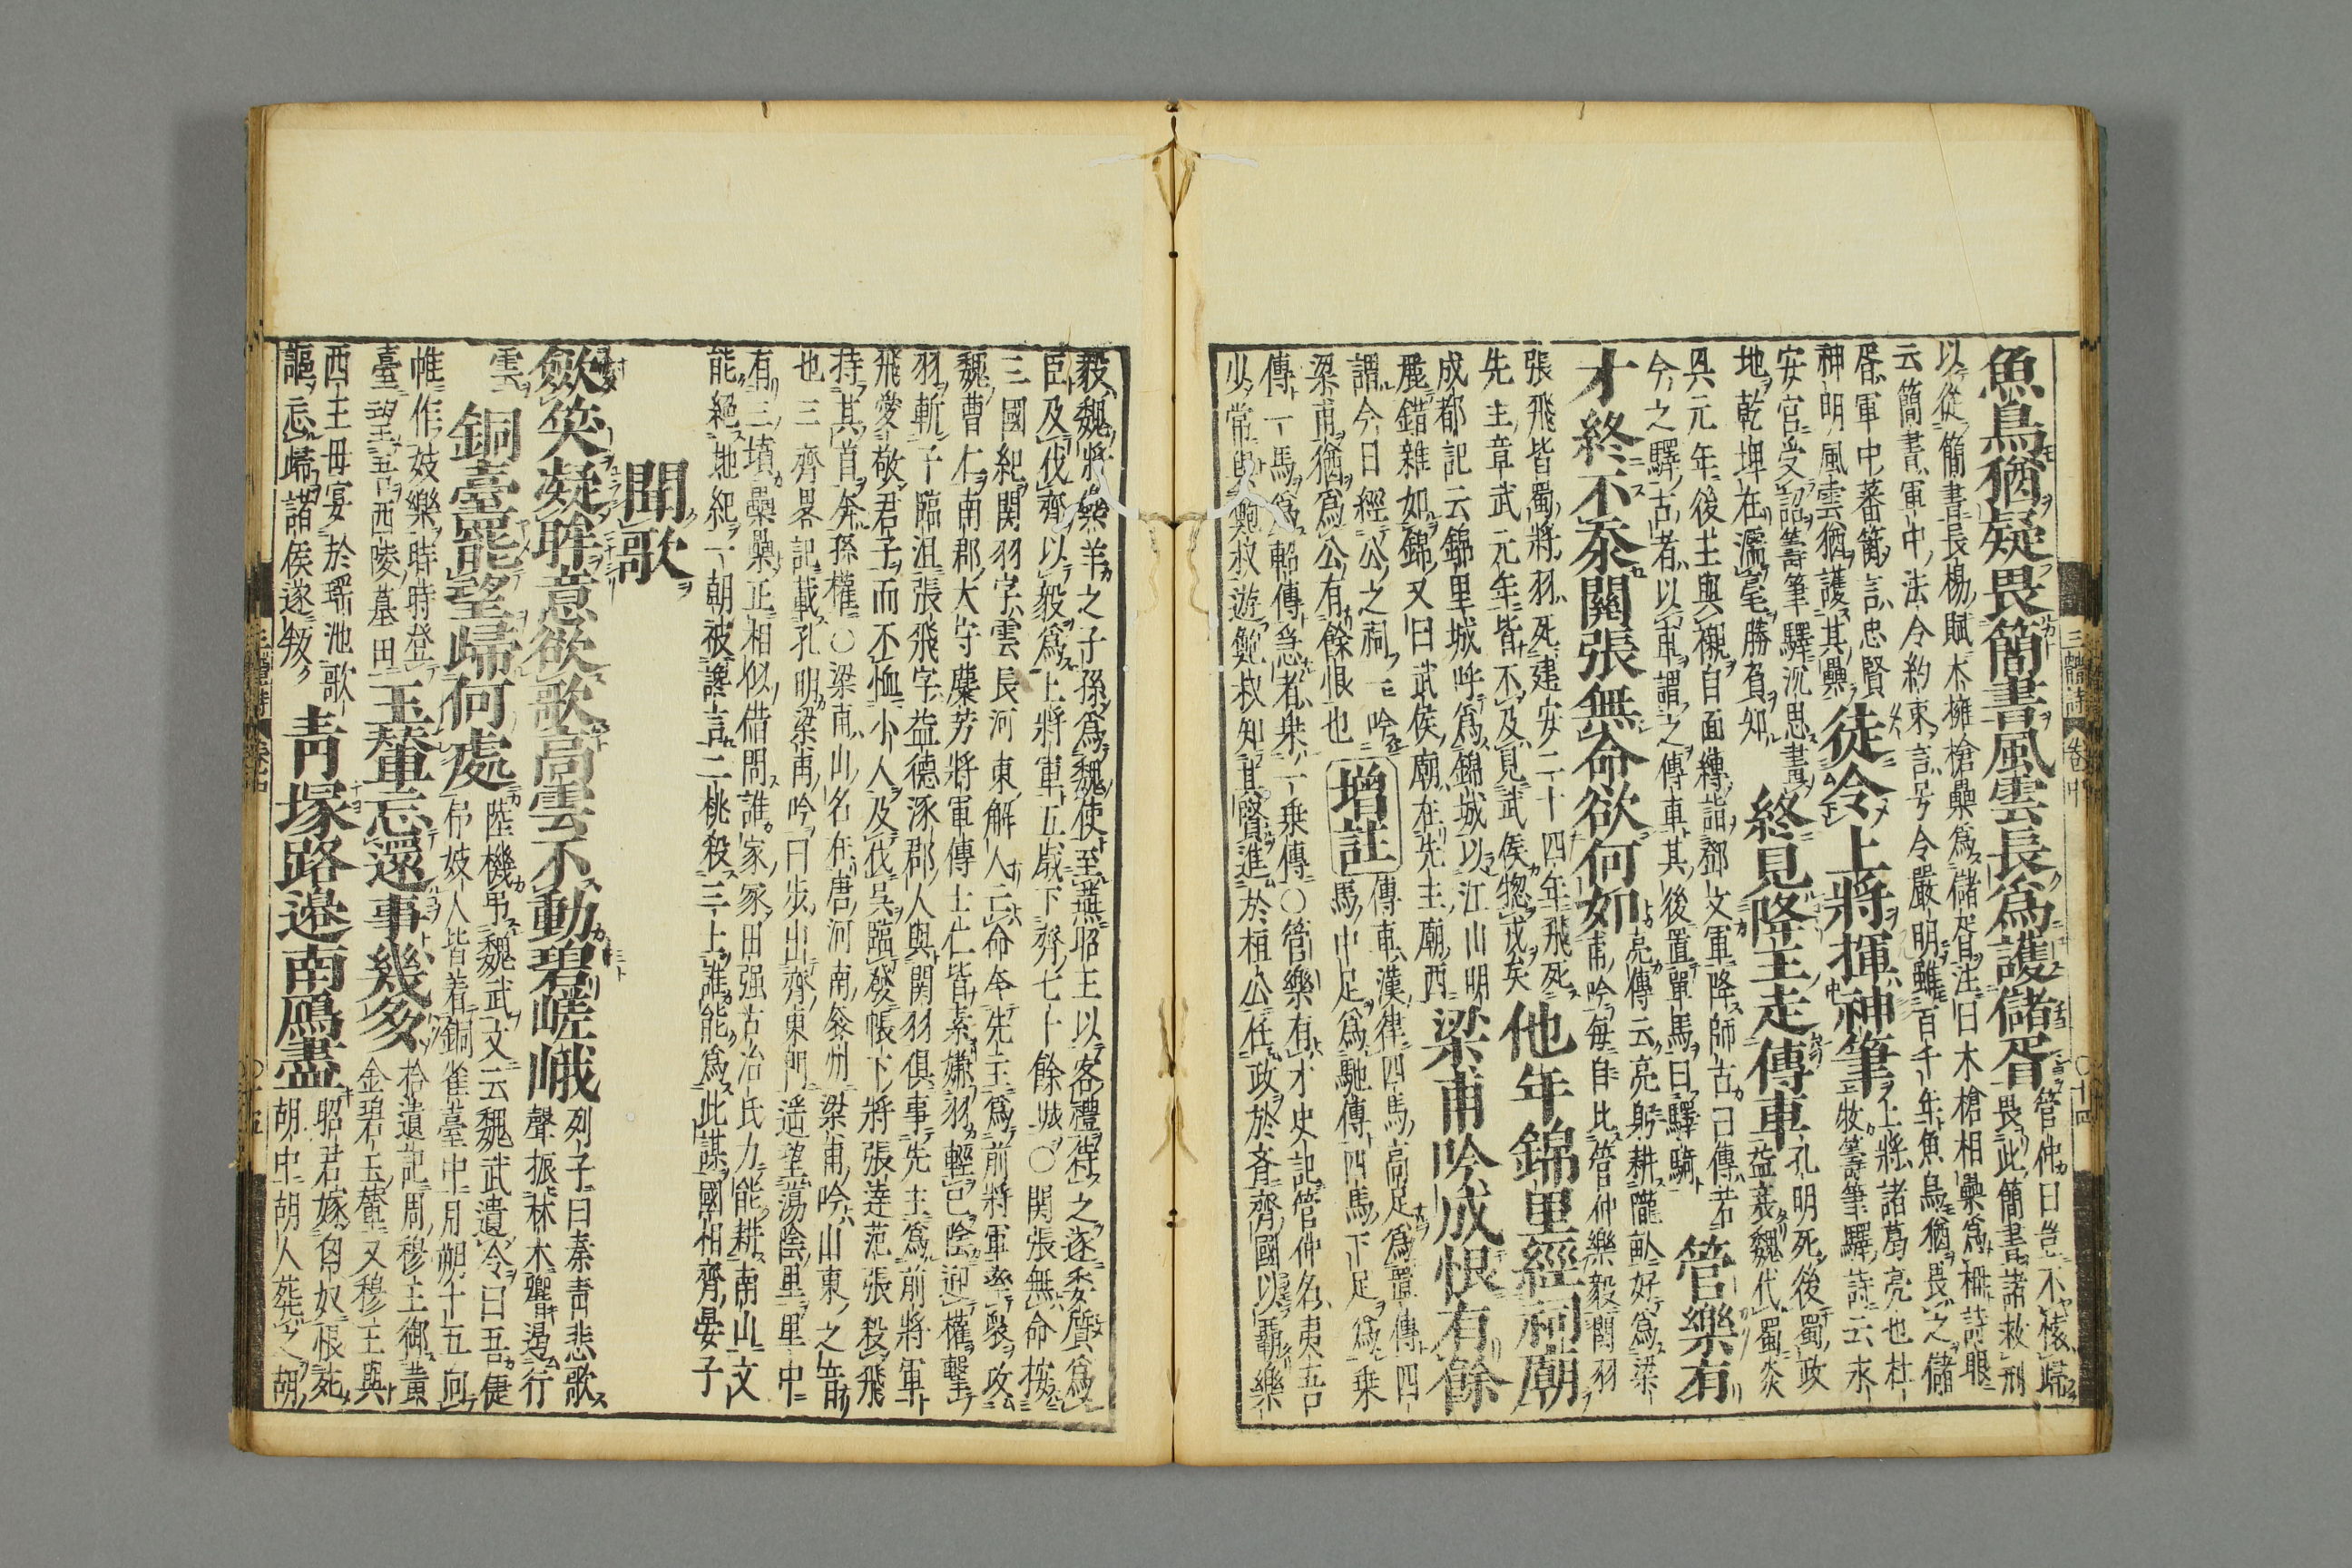 魚鳥猶疑畏簡書風雲長爲護儲胥
管仲曰豈不懷歸
畏此簡書諸救刑
以從簡書長楊賦木擁槍纍爲儲胥注曰木槍相纍爲柵詩眼
云簡書軍中法令約束言号令嚴明雖百千年魚鳥猶畏之儲
胥軍中蕃籬言忠賢
神明風雲猶護其壘
徒令上將揮神筆
上將諸葛亮也杜
牧籌筆驛詩云永
安宮受詔籌筆驛沉思畫
地乾坤在濡毫勝負知
終見降王走傳車
孔明死後蜀政
益衰魏代蜀炎
興元年後主輿櫬自面縛詣鄧文軍降師古曰傳若
今之驛古者以車謂之傳車其後置單馬曰驛騎
管樂有
才終不忝關張無命欲何如
亮傳云亮躬耕隴畝好爲梁
甫吟每自比管仲樂毅關羽
張飛皆蜀將羽死建安二十四年飛死
先主章武元年皆不及見武侯惣戎矣
他年錦里經祠廟
成都記云錦里城呼爲錦城以江山明
麗錯雜如錦又曰武侯廟在先主廟西
梁甫吟成恨有餘
謂今日經公之祠一吟
梁甫猶爲公有餘恨也
增註
傳車漢律四馬高足爲置傳四
馬中足爲馳傳四馬下足爲乗
傳一馬爲軺傳急者乗一乗傳○管樂有才史記管仲名夷吾
少常與鮑叔遊鮑叔知其賢進於桓公任政於齊齊國以覇樂
毅魏將樂羊之子孫爲魏使至燕昭王以客禮待之遂委質爲
臣及伐齊以毅爲上將軍五歳下齊七十餘城○関張無命按
三國紀関羽字雲長河東解人亡命今先主爲前將軍率衆攻
魏曹仁南郡太守麋芳將軍傳士仁皆素嫌羽輕己陰迎權擊
羽斬于臨沮張飛字益德涿郡人與関羽俱事先主爲前將軍
飛愛敬君子而不恤小人及伐呉臨發帳下將張達范張殺飛
持其首奔孫權○梁甫山名在唐河南兖州梁甫吟山東之音
也三齊畧記載孔明梁甫吟曰歩出齊東門遥望蕩陰里里中
有三墳壘壘正相似借問誰家冢田强古冶氏力能耕南山文
能絕地紀一朝被讒言二桃殺三士誰能爲此謀國相齊晏子
聞歌
歛笑凝眸意欲歌高雲不動碧嵯峨
列子曰秦青悲歌
聲振林木響遏行
雲
銅臺罷望歸何處
陸機弔魏武文云魏武遺令曰吾倢
伃妓人皆着銅雀臺中月朔十五向
帷作妓樂時時登
臺望吾西陵墓田
玉輦忘還事幾多
拾遺記周穆王御黄
金碧玉輦又穆王與
西王母宴於瑤池歌
謳忘歸諸侯遂叛
青塚路邊南鴈盡
昭君嫁匈奴恨死
胡中胡人葬之胡